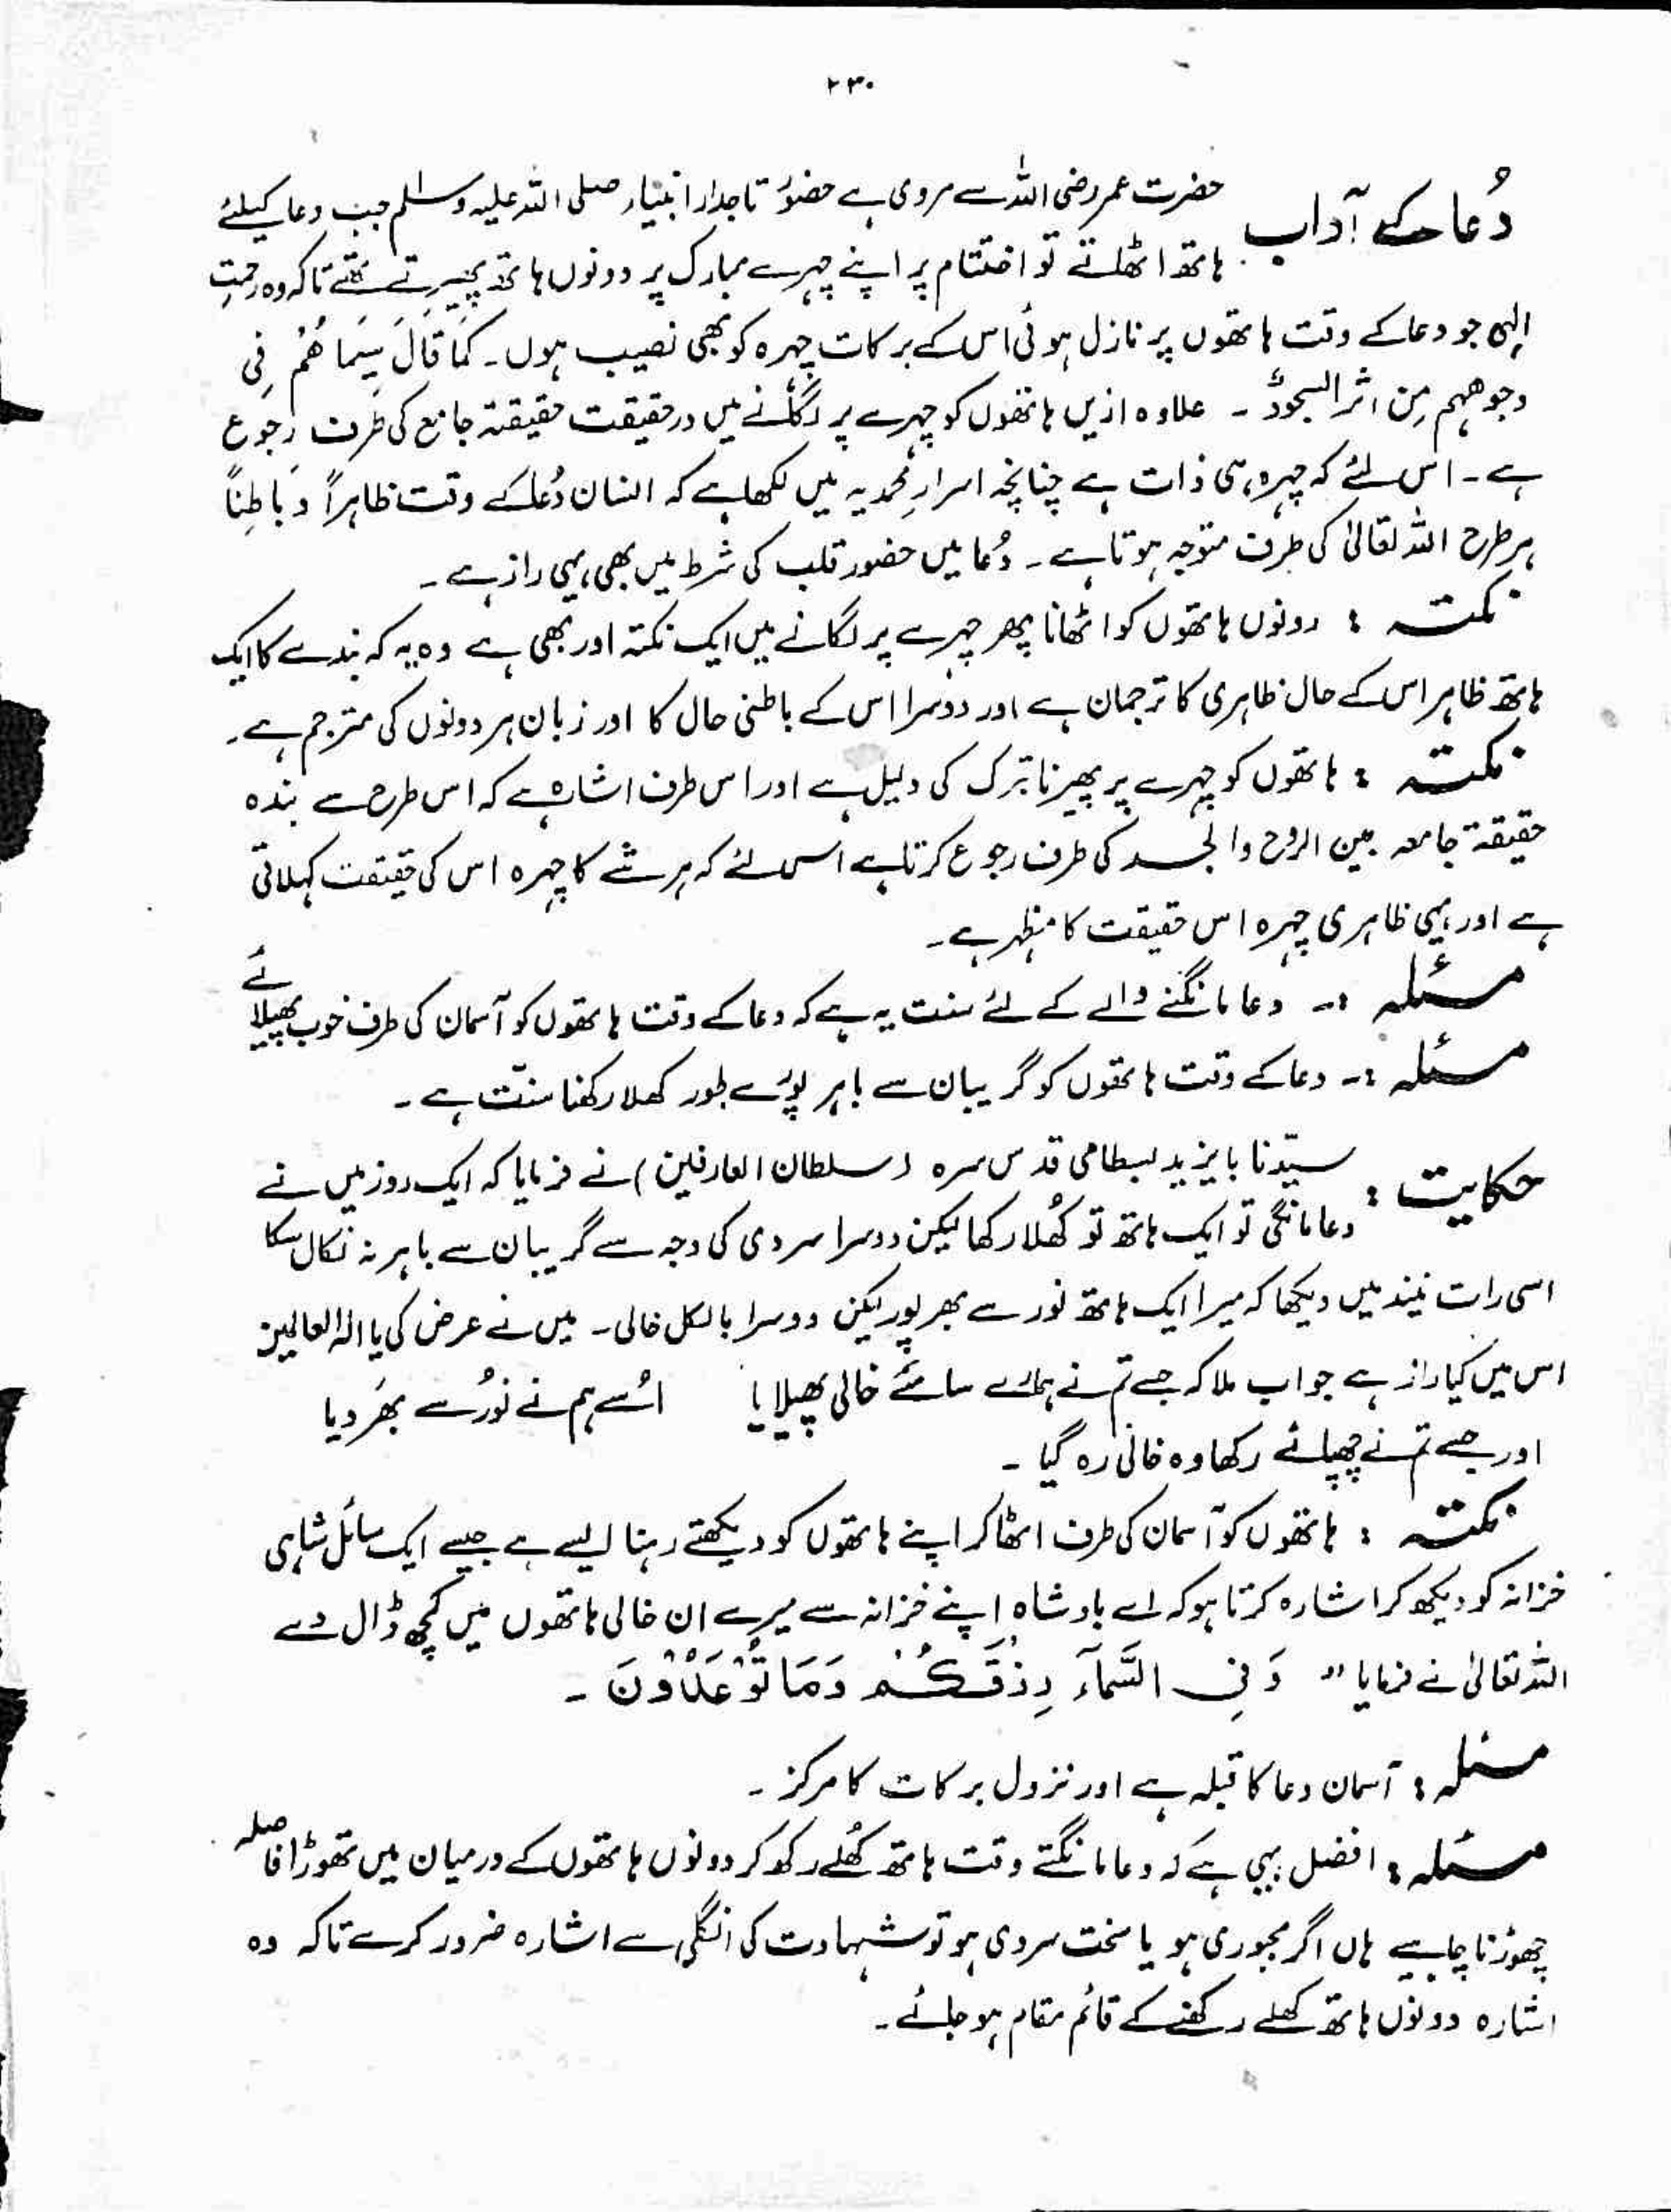 ۲۳۰
دُعا کے آداب
حضرت عمر رضی اللہ سے مروی ہے حضورؐ تاجدار انبیاء صلی اللہ علیہ وسلم جب دعا کیلئے
ہاتھ اٹھاتے تو اختتام پر اپنے چہرے مبارک پر دونوں ہاتھ پھیرتے تھے تاکہ وہ رحمتِ
الٰہی جو دعا کے وقت ہاتھوں پر نازل ہوئی اس کے برکات چہرہ کو بھی نصیب ہوں۔ کَمَا قَالَ سِیمَا ھُمْ فِی
وجوھھم مِن اثر السجودؕ ۔ علاوہ ازیں ہاتھوں کو چہرے پر لگانے میں درحقیقت حقیقۃ جامع کی طرف رجوع
ہے۔ اس لئے کہ چہرہ ہی ذات ہے چنانچہ اسرارِ محمدیہ میں لکھا ہے کہ انسان دُعا کے وقت ظاہراً و باطِناً
ہر طرح اللہ تعالیٰ کی طرف متوجہ ہوتا ہے۔ دُعا میں حضور قلب کی شرط میں بھی یہی راز ہے۔
نکتہ : دونوں ہاتھوں کو اٹھانا پھر چہرے پر لگانے میں ایک نکتہ اور بھی ہے وہ یہ کہ بندے کا ایک
ہاتھ ظاہر اس کے حال ظاہری کا ترجمان ہے اور دوسرا اس کے باطنی حال کا اور زبان ہر دونوں کی مترجم ہے۔
نکتہ : ہاتھوں کو چہرے پر پھیرنا تبرک کی دلیل ہے اور اس طرف اشارہ ہے کہ اس طرح سے بندہ
حقیقۃ جامعہ بین الروح والجسد کی طرف رجوع کرتا ہے اسی لئے کہ ہر شے کا چہرہ اس کی حقیقت کہلاتی
ہے اور یہی ظاہری چہرہ اس حقیقت کا مظہر ہے۔
مسئلہ :۔ دعا مانگنے والے کے لئے سنت یہ ہے کہ دعا کے وقت ہاتھوں کو آسمان کی طرف خوب پھیلائے
مسئلہ :۔ دعا کے وقت ہاتھوں کو گریبان سے باہر پورے طور کھلا رکھنا سنّت ہے۔
حکایت : سیّدنا بایزید بسطامی قدس سرہ (سلطان العارفین) نے فرمایا کہ ایک روز میں نے
دعا مانگی تو ایک ہاتھ تو کُھلا رکھا لیکن دوسرا سردی کی وجہ سے گریبان سے باہر نہ نکال سکا
اسی رات نیند میں دیکھا کہ میرا ایک ہاتھ نور سے بھرپور لیکن دوسرا بالکل خالی۔ میں نے عرض کی یا الٰہ العالمین
اس میں کیا راز ہے جواب ملا کہ جسے تم نے ہمارے سامنے خالی پھیلایا اُسے ہم نے نورُ سے بھَر دیا
اور جسے تم نے چھپائے رکھا وہ خالی رہ گیا ۔
نکتہ : ہاتھوں کو آسمان کی طرف اٹھا کر اپنے ہاتھوں کو دیکھتے رہنا ایسے ہے جیسے ایک سائل شاہی
خزانہ کو دیکھ کر اشارہ کرتا ہو کہ اے بادشاہ اپنے خزانہ سے میرے ان خالی ہاتھوں میں کچھ ڈال دے
اللہ تعالیٰ نے فرمایا " وَ فِی السَّمَآءِ رِزْقُکُمْ وَمَا تُوْعَدُوْنَ ۔
مسئلہ : آسمان دعا کا قبلہ ہے اور نزول برکات کا مرکز ۔
مسئلہ : افضل یہی ہے کہ دعا مانگتے وقت ہاتھ کُھلے رکھ کر دونوں ہاتھوں کے درمیان میں تھوڑا فاصلہ
چھوڑنا چاہیے ہاں اگر مجبوری ہو یا سخت سردی ہو تو شہادت کی انگلی سے اشارہ ضرور کرے تاکہ وہ
اشارہ دونوں ہاتھ کھلے رکھنے کے قائم مقام ہو جائے۔